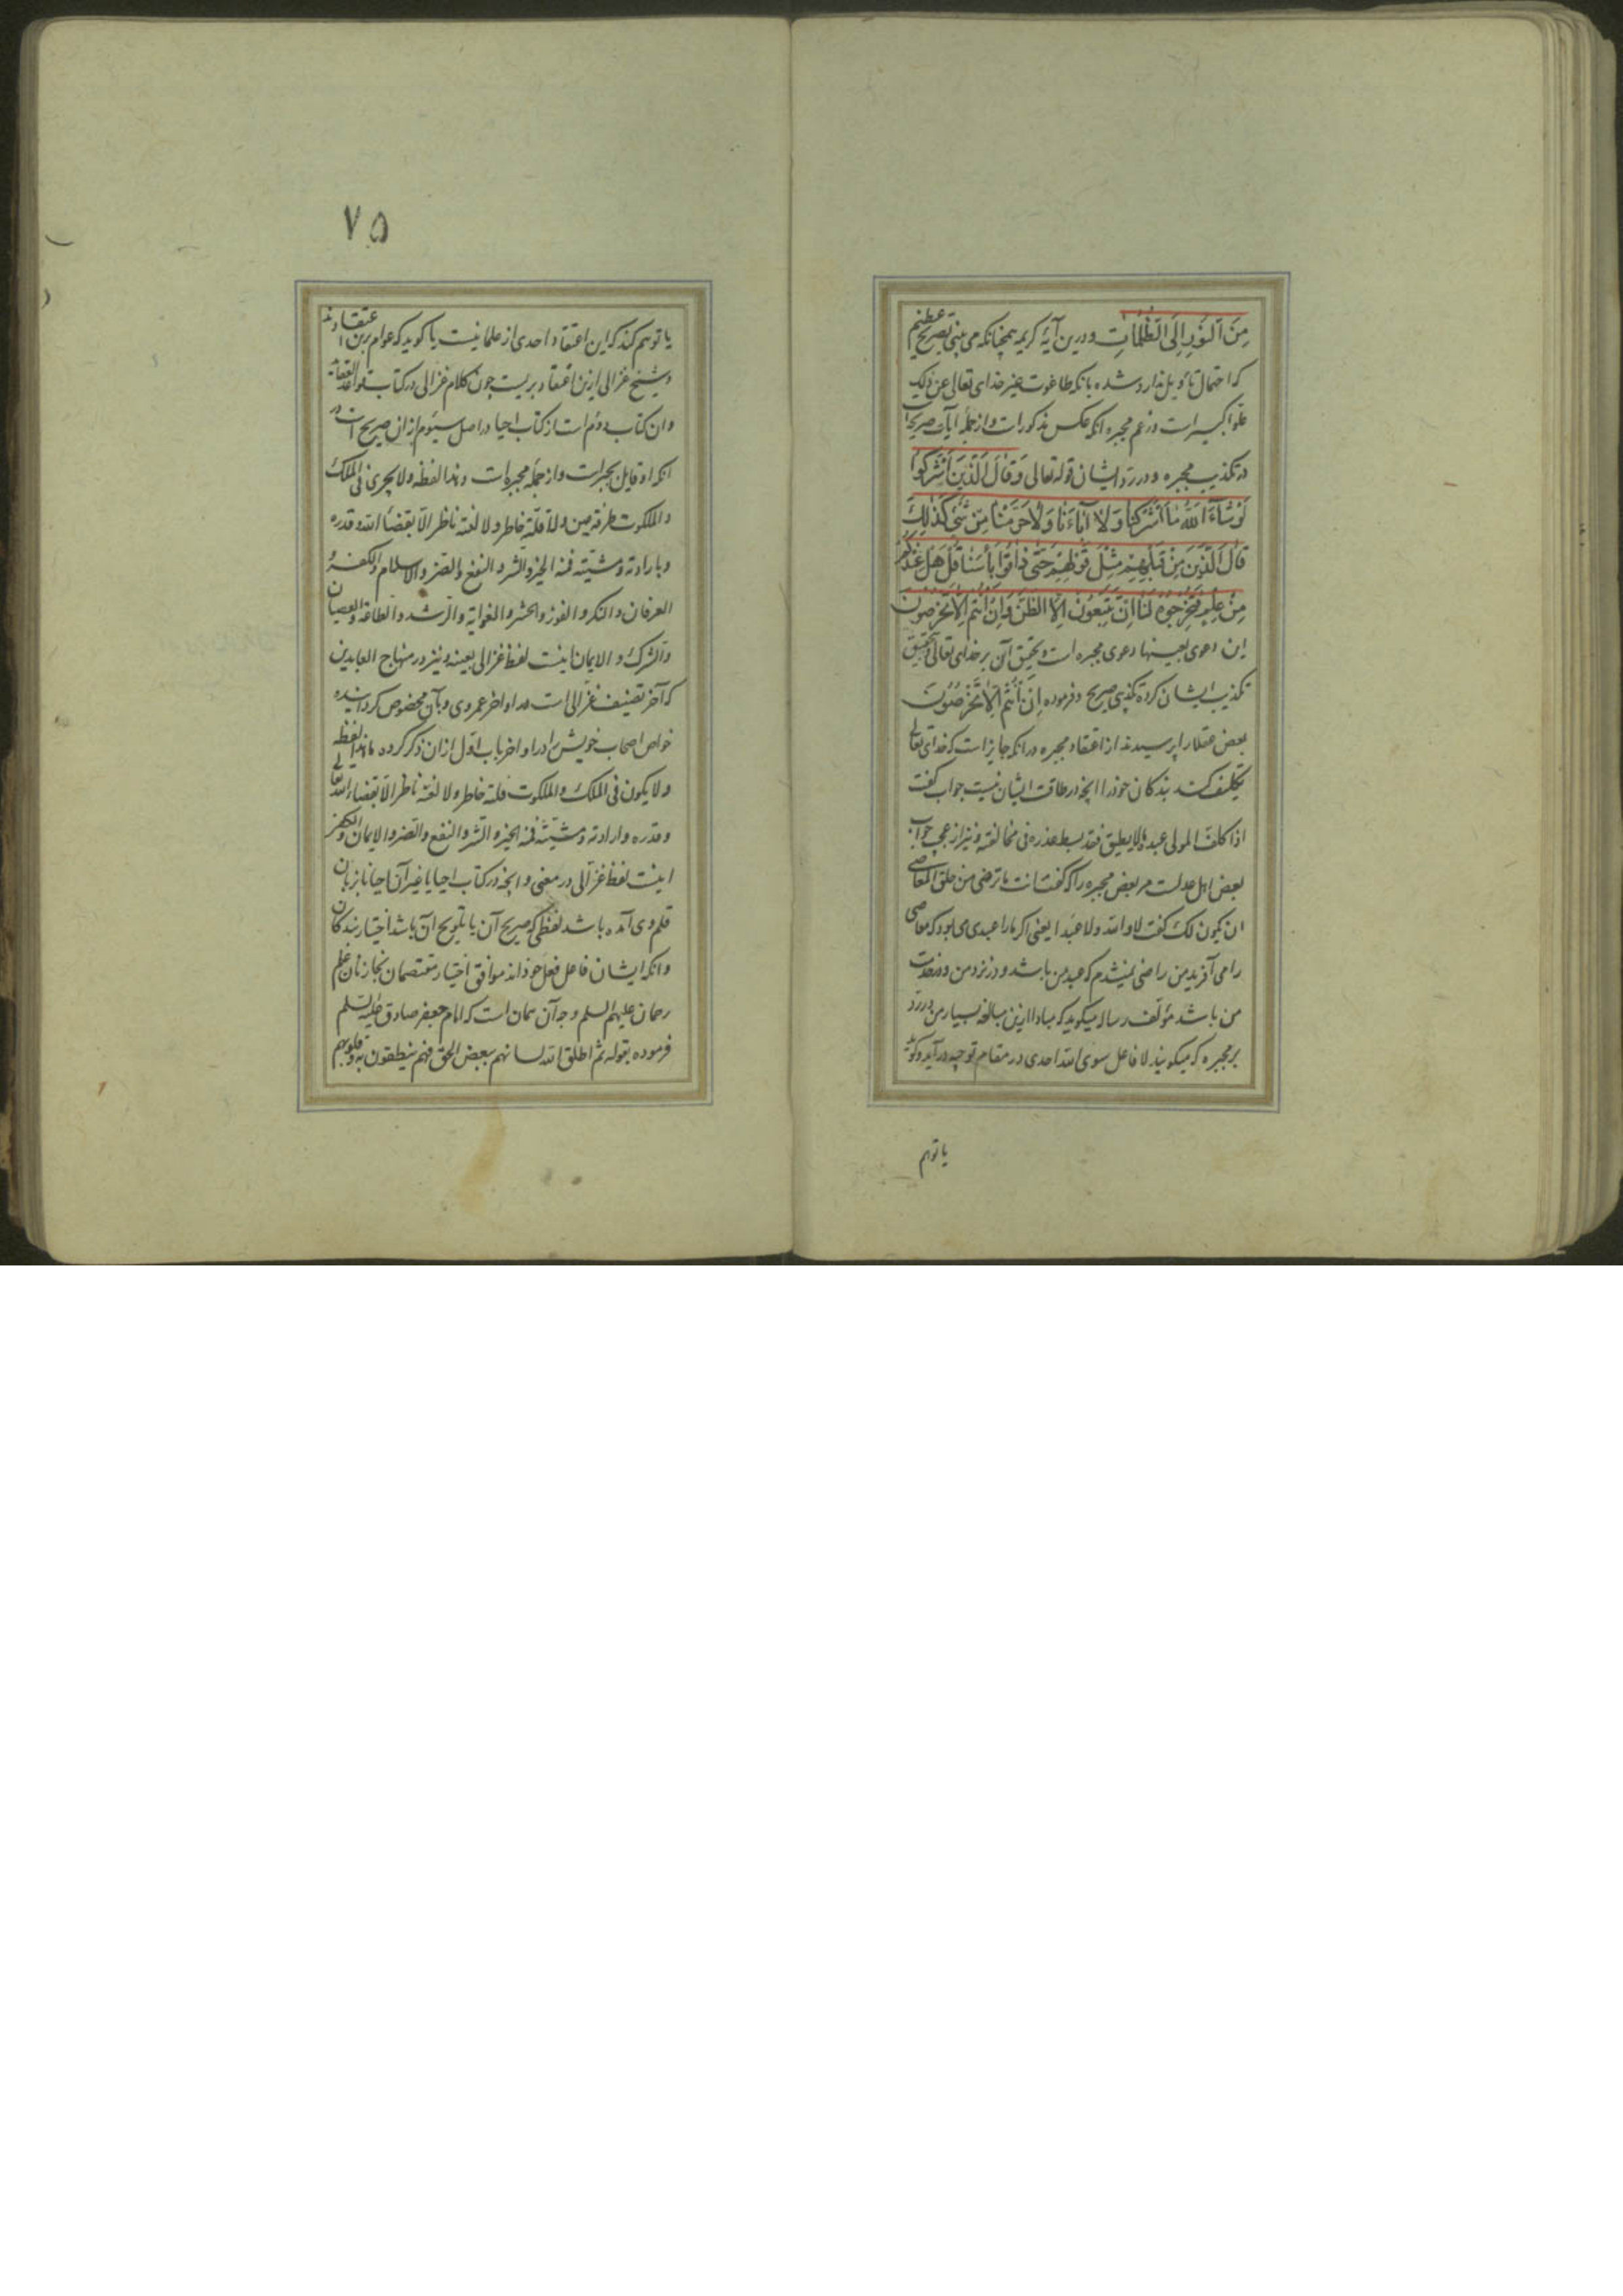 مِنَ النُّورِ اِلَی الظُّلُمَاتِ و درین آیهٔ کریمه همچنانکه می بینی تصریح عظیم
که احتمال تأویل ندارد شده بانکه طاغوت غیر خدای تعالی عن ذلک
علوا کبیرا است و زعم مجبره انکه عکس مذکور است و از جملهٔ آیات صریحه
در تکذیب مجبره و در رد ایشان قوله تعالی وَقَالَ الَّذِینَ اَشْرَکُوا
لَوْ شَآءَ اللهُ مَا اَشْرَکْنَا وَلَا آبَاءُنَا وَلَا حَرَّمْنَا مِنْ شَیْ کَذٰلِکَ
قَالَ الَّذِینَ مِنْ قَبْلِهِمْ مِثْلَ قَوْلِهِمْ حَتّٰی ذَاقُوا بَأْسَنَا قُلْ هَلْ عِنْدَکُمْ
مِنْ عِلْمٍ فَتُخْرِجُوهُ لَنَا اِنْ تَتَّبِعُونَ اِلَّا الظَّنَّ وَاِنْ اَنْتُمْ اِلَّا تَخْرُصُونَ
این دعوی بعینها دعوی مجبره است و تحقیق آن بر خدای تعالی و تحقیق
تکذیب ایشان کرده تکذیبی صریح و فرموده اِنْ اَنْتُمْ اِلَّا تَخْرُصُونَ
بعض عقلا را پرسیدند از اعتقاد مجبره در انکه جایز است که خدای تعالی
تکلیف کند بندکان خود را انچه در طاقت ایشان نیست جواب کفت
اذا کلف المولی عبده ما لا یطیق فقد بسط عذره فی مخالفته و نیز از عجب جواب
بعض اهل عدلست مر بعض مجبره را که کفت انت ما ترضی من خلق المعاصی
ان یکون لک کفت لا والله ولا عبدا یعنی اکر مارا عبدی می بود که معاصی
را می آفرید من راضی نمیشدم که عبد من باشد و در نزد من و در خدمت
من باشد مؤلف رساله میکوید که مبادا ازین مبالغهٔ بسیار من در رد
بر مجبره که میکویند لا فاعل سوی الله احدی در مقام توحید در آید و کوید
یا توهم
۷۵
یا توهم کند که این اعتقاد احدی از علما نیست یا کوید که عوام برین اعتقادند
و شیخ غزالی ازین اعتقاد بریست چون کلام غزالی در کتاب قواعد العقاید
و ان کتاب دوم است از کتاب احیا در اصل سیوم از ان صریح است در
انکه او قایل بجبر است و از جملهٔ مجبره است و هذا لفظه ولا یجری فی الملک
والملکوت طرفة عین ولا فلتة خاطر ولا لفتة ناظر الا بقضاء الله وقدره
وبارادته ومشیته فمنه الخیر والشر والنفع والضر والاسلام والکفر
العرفان والنکر والفوز والخسر والغوایة والرشد والطاعة والعصیان
والشرک والایمان اینست لفظ غزالی بعینه و نیز در منهاج العابدین
که آخر تصنیف غزالی است در اواخر عمر وی و بآن مخصوص کردانیده
خواص اصحاب خویش را در اواخر باب اول از ان ذکر کرده ما هذا لفظه
ولا یکون فی الملک والملکوت فلتة خاطر ولا لفتة ناظر الا بقضاء الله تعالی
وقدره وارادته ومشیته فمنه الخیر والشر والنفع والضر والایمان والکفر
اینست لفظ غزالی در معنی و انچه در کتاب احیا یا غیر آن احیانا بر زبان
قلم وی آمده باشد لفظی که صریح آن یا تلویح آن باشد اختیار بندکان
وانکه ایشان فاعل فعل خوذ اند موافق اختیار معتصمان بخازنان علم
رحمان علیهم السلم وجه آن همان است که امام جعفر صادق علیه السلم
فرموده بقوله ثم اطلق الله لسانهم ببعض الحق فهم ینطقون به و قلوبهم